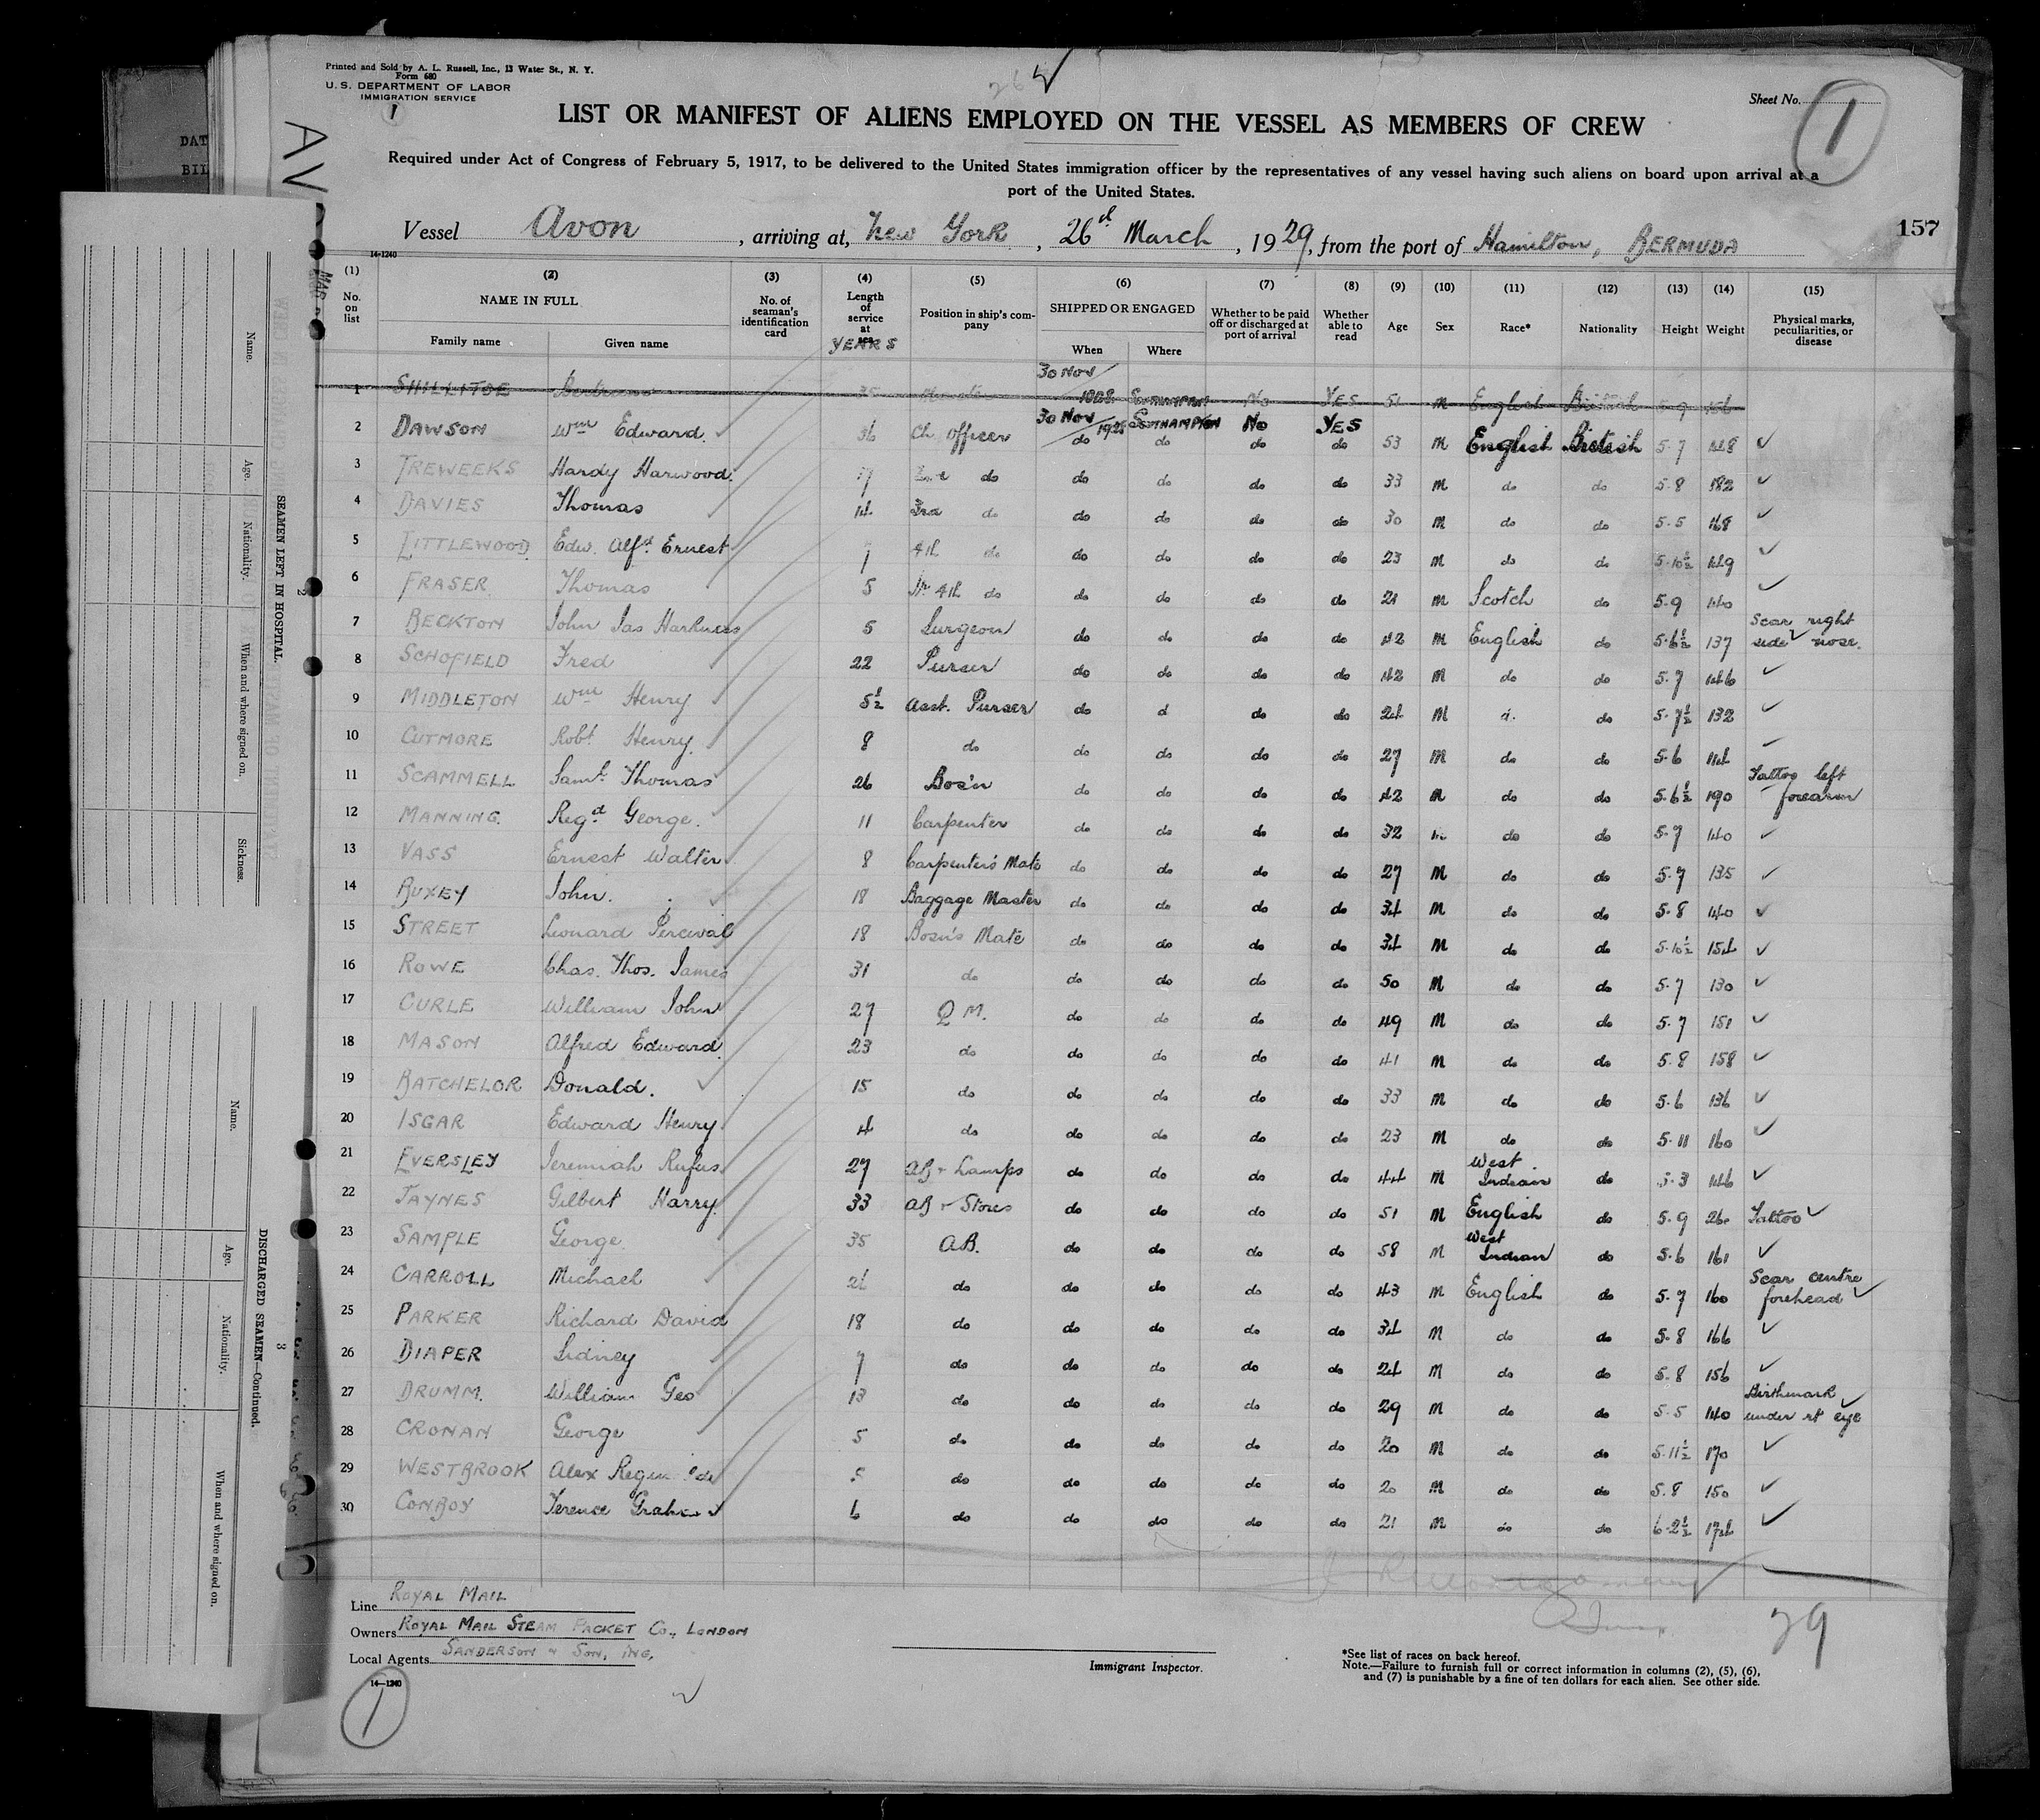 Printed and Sold by A. L. Russell, Inc., 13 Water St., N. Y.
Form 680
U. S. DEPARTMENT OF LABOR
IMMIGRATION SERVICE
1
Sheet No.
1
LIST OR MANIFEST OF ALIENS EMPLOYED ON THE VESSEL AS MEMBERS OF CREW
Required under Act of Congress of February 5, 1917, to be delivered to the United States immigration officer by the representatives of any vessel having such aliens on board upon arrival at a
port of the United States.
157
Vessel Avon, arriving at, New York, 26th March, 1929, from the port of Hamilton, BERMUDA
14-1240
(1) (2) (3) (4) (5) (6) (7) (8) (9) (10) (11) (12) (13) (14) (15)
No. on list NAME IN FULL Family name Given name No. of seaman's identification card Length of service at sea YEARS Position in ship's company SHIPPED OR ENGAGED When Where Whether to be paid off or discharged at port of arrival Whether able to read Age Sex Race* Nationality Height Weight Physical marks, peculiarities, or disease
1 SHILLITOE 35 30 Nov 1928 SOUTHAMPTON No YES 51 M English British 5-9
2 DAWSON Wm Edward 36 Ch. Officer 30 Nov 1928 do SOUTHAMPTON do No do YES do 53 M English British 5-7 148
3 TREWEEKS Hardy Harwood. 17 2nd do do do do do 33 M do do 5-8 182
4 DAVIES Thomas 14 3rd do do do do do 30 M do do 5-5 168
5 LITTLEWOOD Edw. Alfd. Ernest 7 4th do do do do do 23 M do do 5-10½ 149
6 FRASER Thomas 5 Jr. 4th do do do do do 21 M Scotch do 5-9 140
7 BECKTON John Jas Harkness 5 Surgeon do do do do 42 M English do 5-6½ 137 Scar right side nose.
8 SCHOFIELD Fred 22 Purser do do do do 42 M do do 5-7 146
9 MIDDLETON Wm Henry 5½ Asst. Purser do d do do 24 M d. do 5-7½ 132
10 CUTMORE Robt. Henry. 8 do do do do do 27 M do do 5-6 114
11 SCAMMELL Saml. Thomas 26 Bos'n do do do do 42 M do do 5-6½ 190 Tattoo left forearm
12 MANNING. Regd. George. 11 Carpenter do do do do 32 M do do 5-7 140
13 VASS Ernest Walter 8 Carpenter's Mate do do do do 27 M do do 5-7 135
14 BUXEY John. 18 Baggage Master do do do do 34 M do do 5-8 140
15 STREET Leonard Percival 18 Bosn's Mate do do do do 34 M do do 5-10½ 154
16 ROWE Chas. Thos. James 31 do do do do do 50 M do do 5-7 130
17 CURLE William John 27 Q M. do do do do 49 M do do 5-7 151
18 MASON Alfred Edward. 23 do do do do do 41 M do do 5-8 158
19 BATCHELOR Donald. 15 do do do do do 33 M do do 5-6 136
20 ISGAR Edward Henry. 4 do do do do do 23 M do do 5-11 160
21 EVERSLEY Jeremiah Rufus. 27 AB + Lamps do do do do 44 M West Indian do 5-3 146
22 JAYNES Gilbert Harry. 33 AB + Stores do do do do 51 M English do 5-9 Tattoo
23 SAMPLE George. 35 A.B. do do do do 58 M West Indian do 5-6 161
24 CARROLL Michael 26 do do do do do 43 M English do 5-7 160 Scar centre forehead
25 PARKER Richard David 18 do do do do do 34 M do do 5-8 166
26 DIAPER Sidney 7 do do do do do 24 M do do 5-8 156
27 DRUMM. William Geo 13 do do do do do 29 M do do 5-5 140 Birthmark under rt eye
28 CRONAN George 5 do do do do do 20 M do do 5-11½ 170
29 WESTBROOK Alex 5 do do do do do 20 M do do 5-8 150
30 CONBOY Terence Graham 6 do do do do do 21 M do do 6-2½ 174
Line ROYAL MAIL
Owners ROYAL MAIL STEAM PACKET Co., LONDON
Local Agents SANDERSON & SON, INC,
14—1240
1
Immigrant Inspector.
29
*See list of races on back hereof.
Note.—Failure to furnish full or correct information in columns (2), (5), (6),
and (7) is punishable by a fine of ten dollars for each alien. See other side.
AV
DAT
BIL
SEAMEN LEFT IN HOSPITAL.
2
Name.
Age.
Nationality.
When and where signed on.
Sickness.
DISCHARGED SEAMEN—Continued.
3
Name.
Age.
Nationality.
When and where signed on.